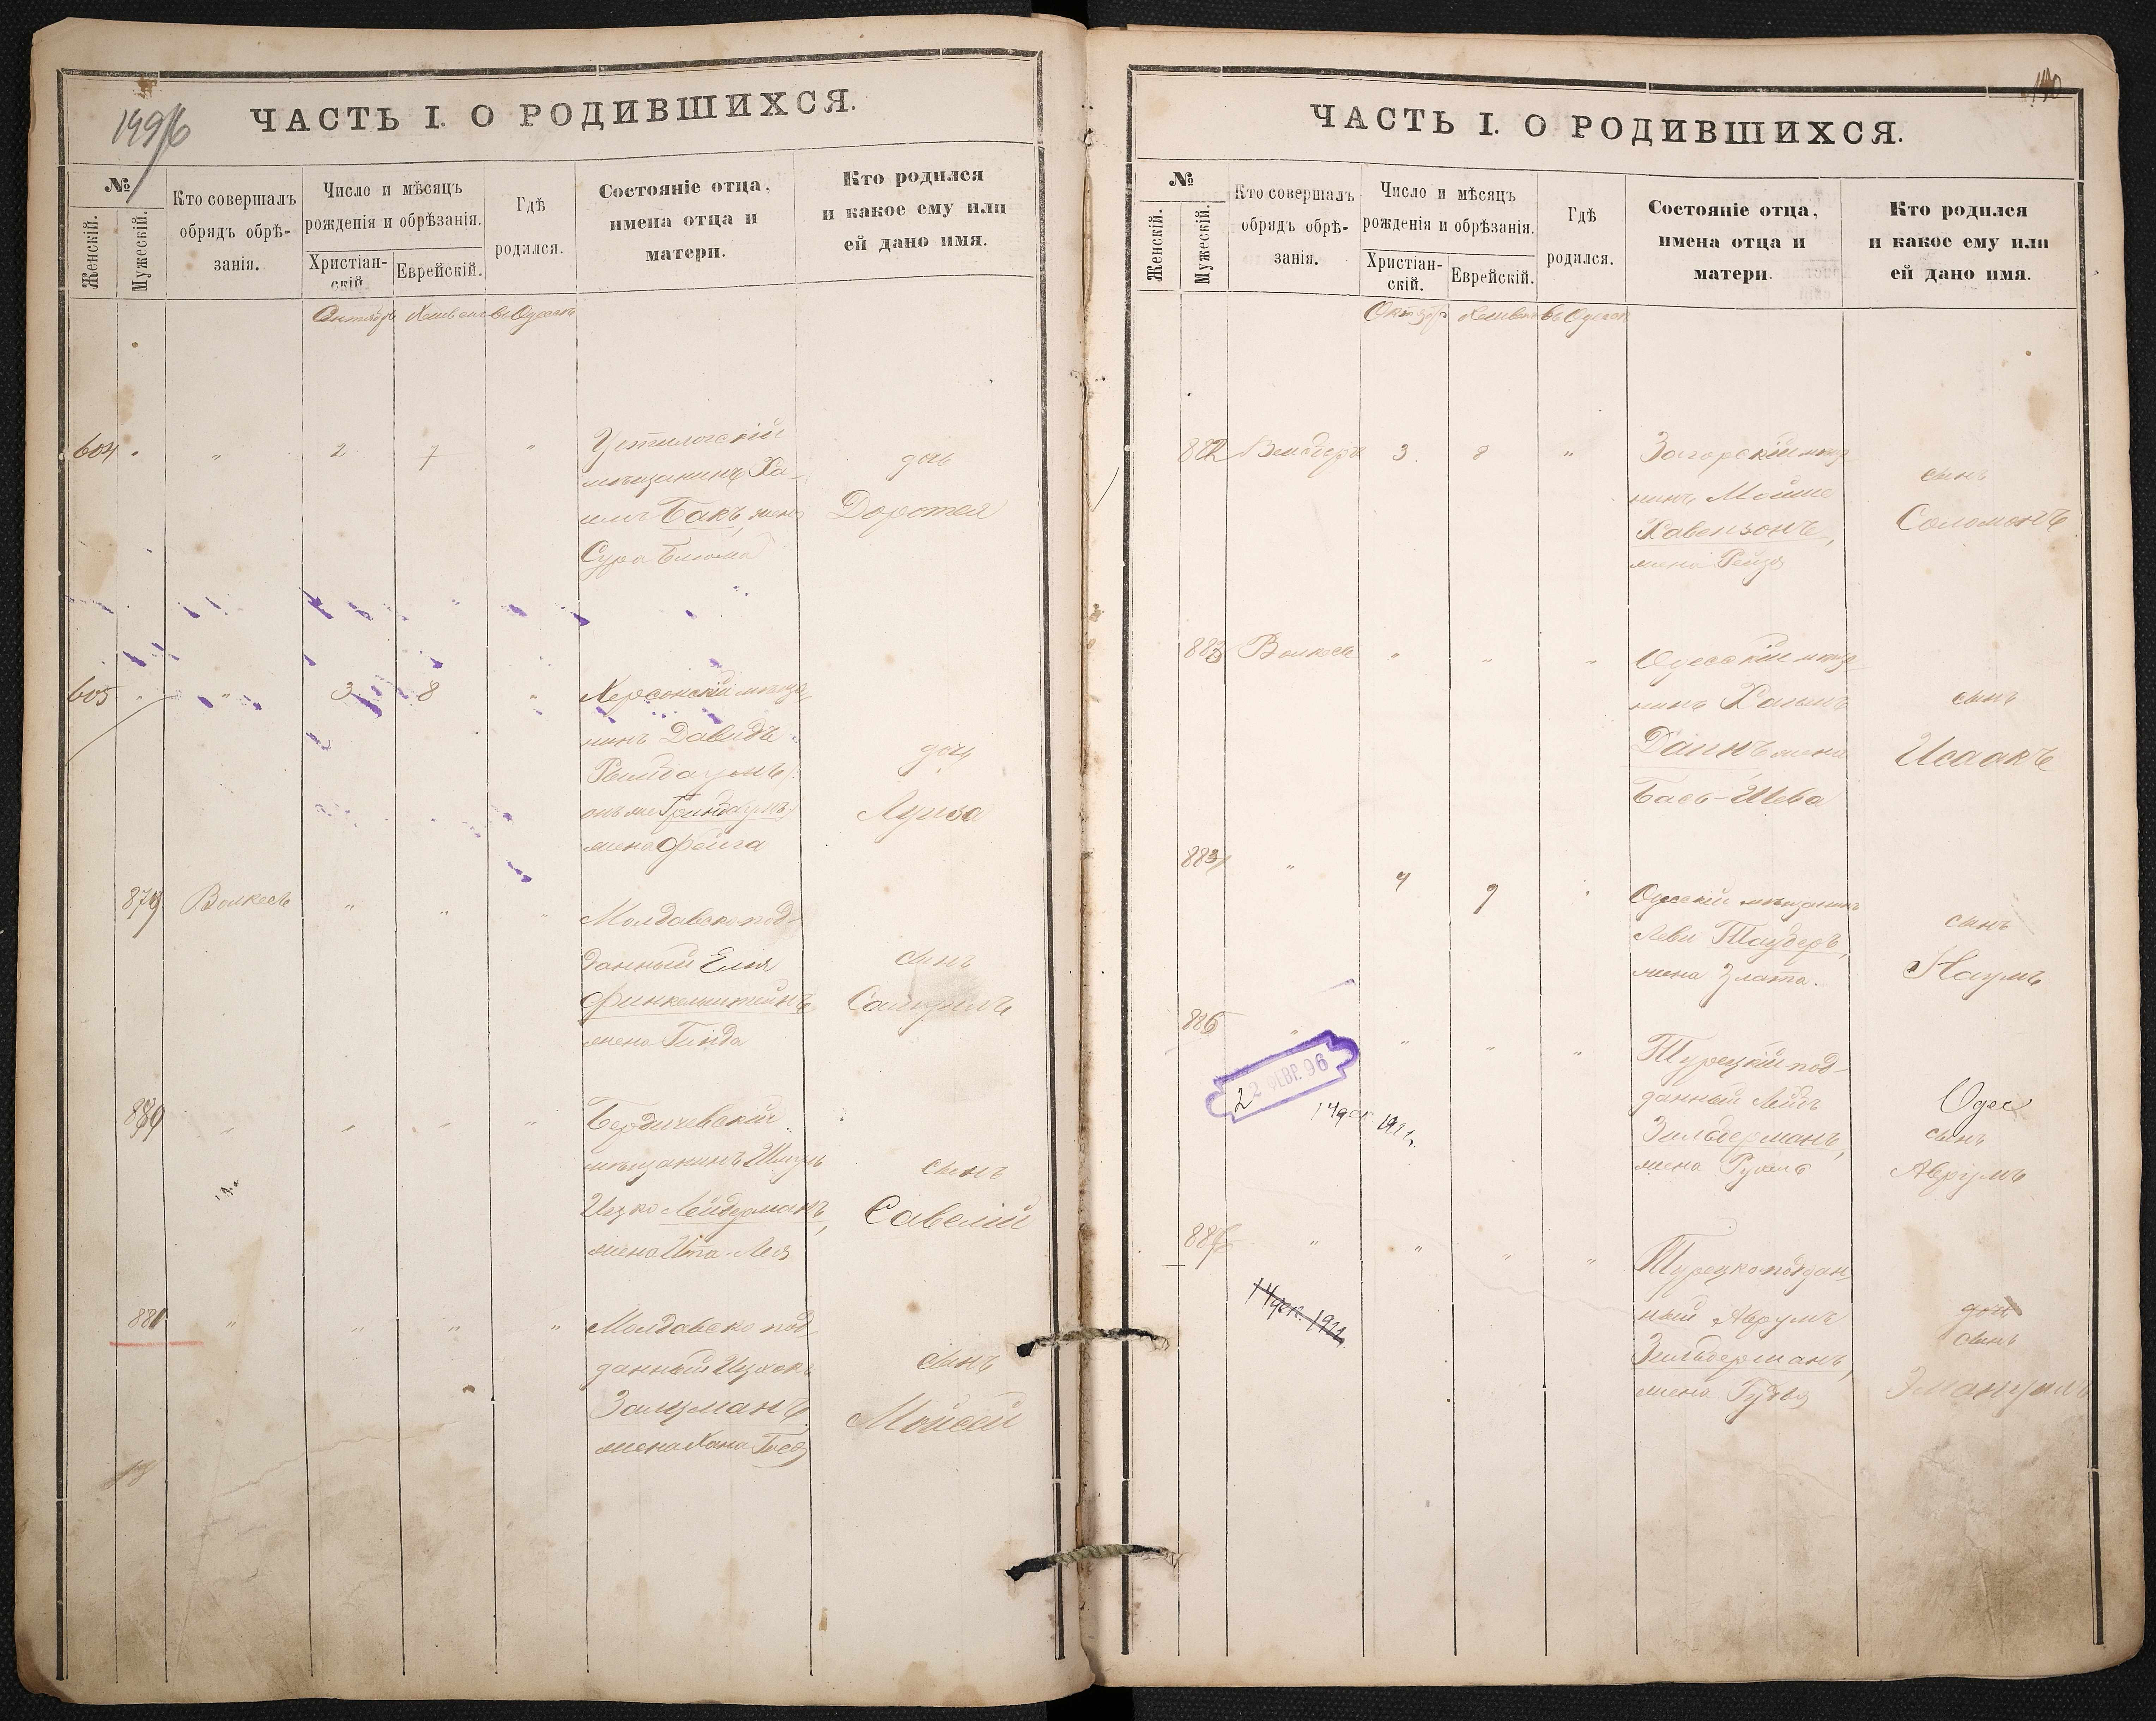 1496
ЧАСТЬ I. О РОДИВШИХСЯ.
№
Женскій.
Мужескій.
Кто совершалъ
обрядъ обрѣ-
занія.
Число и мѣсяцъ
рожденія и обрѣзанія.
Христіан-
скій.
Еврейскій.
Гдѣ
родился.
Состояніе отца,
имена отца и
матери.
Кто родился
и какое ему или
ей дано имя.
Октябрь
въ Одессѣ
604 " " 2 7 "
мѣщанинъ Ха-
имъ Бакъ, жена
Сура Блюма
дочь
Доротея
605 " " 3 8 "
Херсонскій мѣща-
нинъ Давидъ
онъ же Гринбаумъ
жена Фейга
дочь
Луиза
879 " " "
Молдавско под-
данный Еля
Финкельштейнъ
жена Гинда
сынъ
Самуилъ
" " " "
Бердичевскій
мѣщанинъ Шмуль
Ицко Лейдерманъ,
жена Ита-Лея
сынъ
Савелій
881 " " " "
Молдавско под-
данный Ицхокъ
Залцманъ
жена Хана
сынъ
Мойсей
ЧАСТЬ I. О РОДИВШИХСЯ.
№
Женскій.
Мужескій.
Кто совершалъ
обрядъ обрѣ-
занія.
Число и мѣсяцъ
рожденія и обрѣзанія.
Христіан-
скій.
Еврейскій.
Гдѣ
родился.
Состояніе отца,
имена отца и
матери.
Кто родился
и какое ему или
ей дано имя.
Октябр
въ Одесс
882 3 8 "
Загорскій мѣща-
нинъ Мойше
Хавензонъ,
жена Рейзя
сынъ
Соломонъ
883 " " "
Одесскій мѣща-
нинъ Хаимъ
жена
Бася-Шева
сынъ
Исаакъ
" 4 9 "
Одесскій мѣщанинъ
Леви Таубер,
жена Злата.
сынъ
Наумъ
885 " " " "
22 ФЕВР. 96
14 дек. 1921.
Турецкій под-
данный Лейбъ
Зильберманъ,
жена Рухля
Одес
сынъ
Аврумъ
886 " " " "
14 дек. 1921.
Турецко-поддан-
ный Аврумъ
Зильберманъ,
жена
дочь
сынъ
Эмануилъ